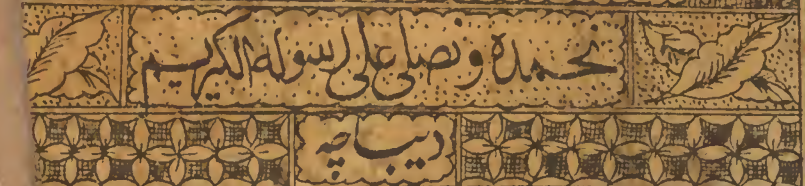 نحمده ونصلی علی رسوله الکریم
دیباچه